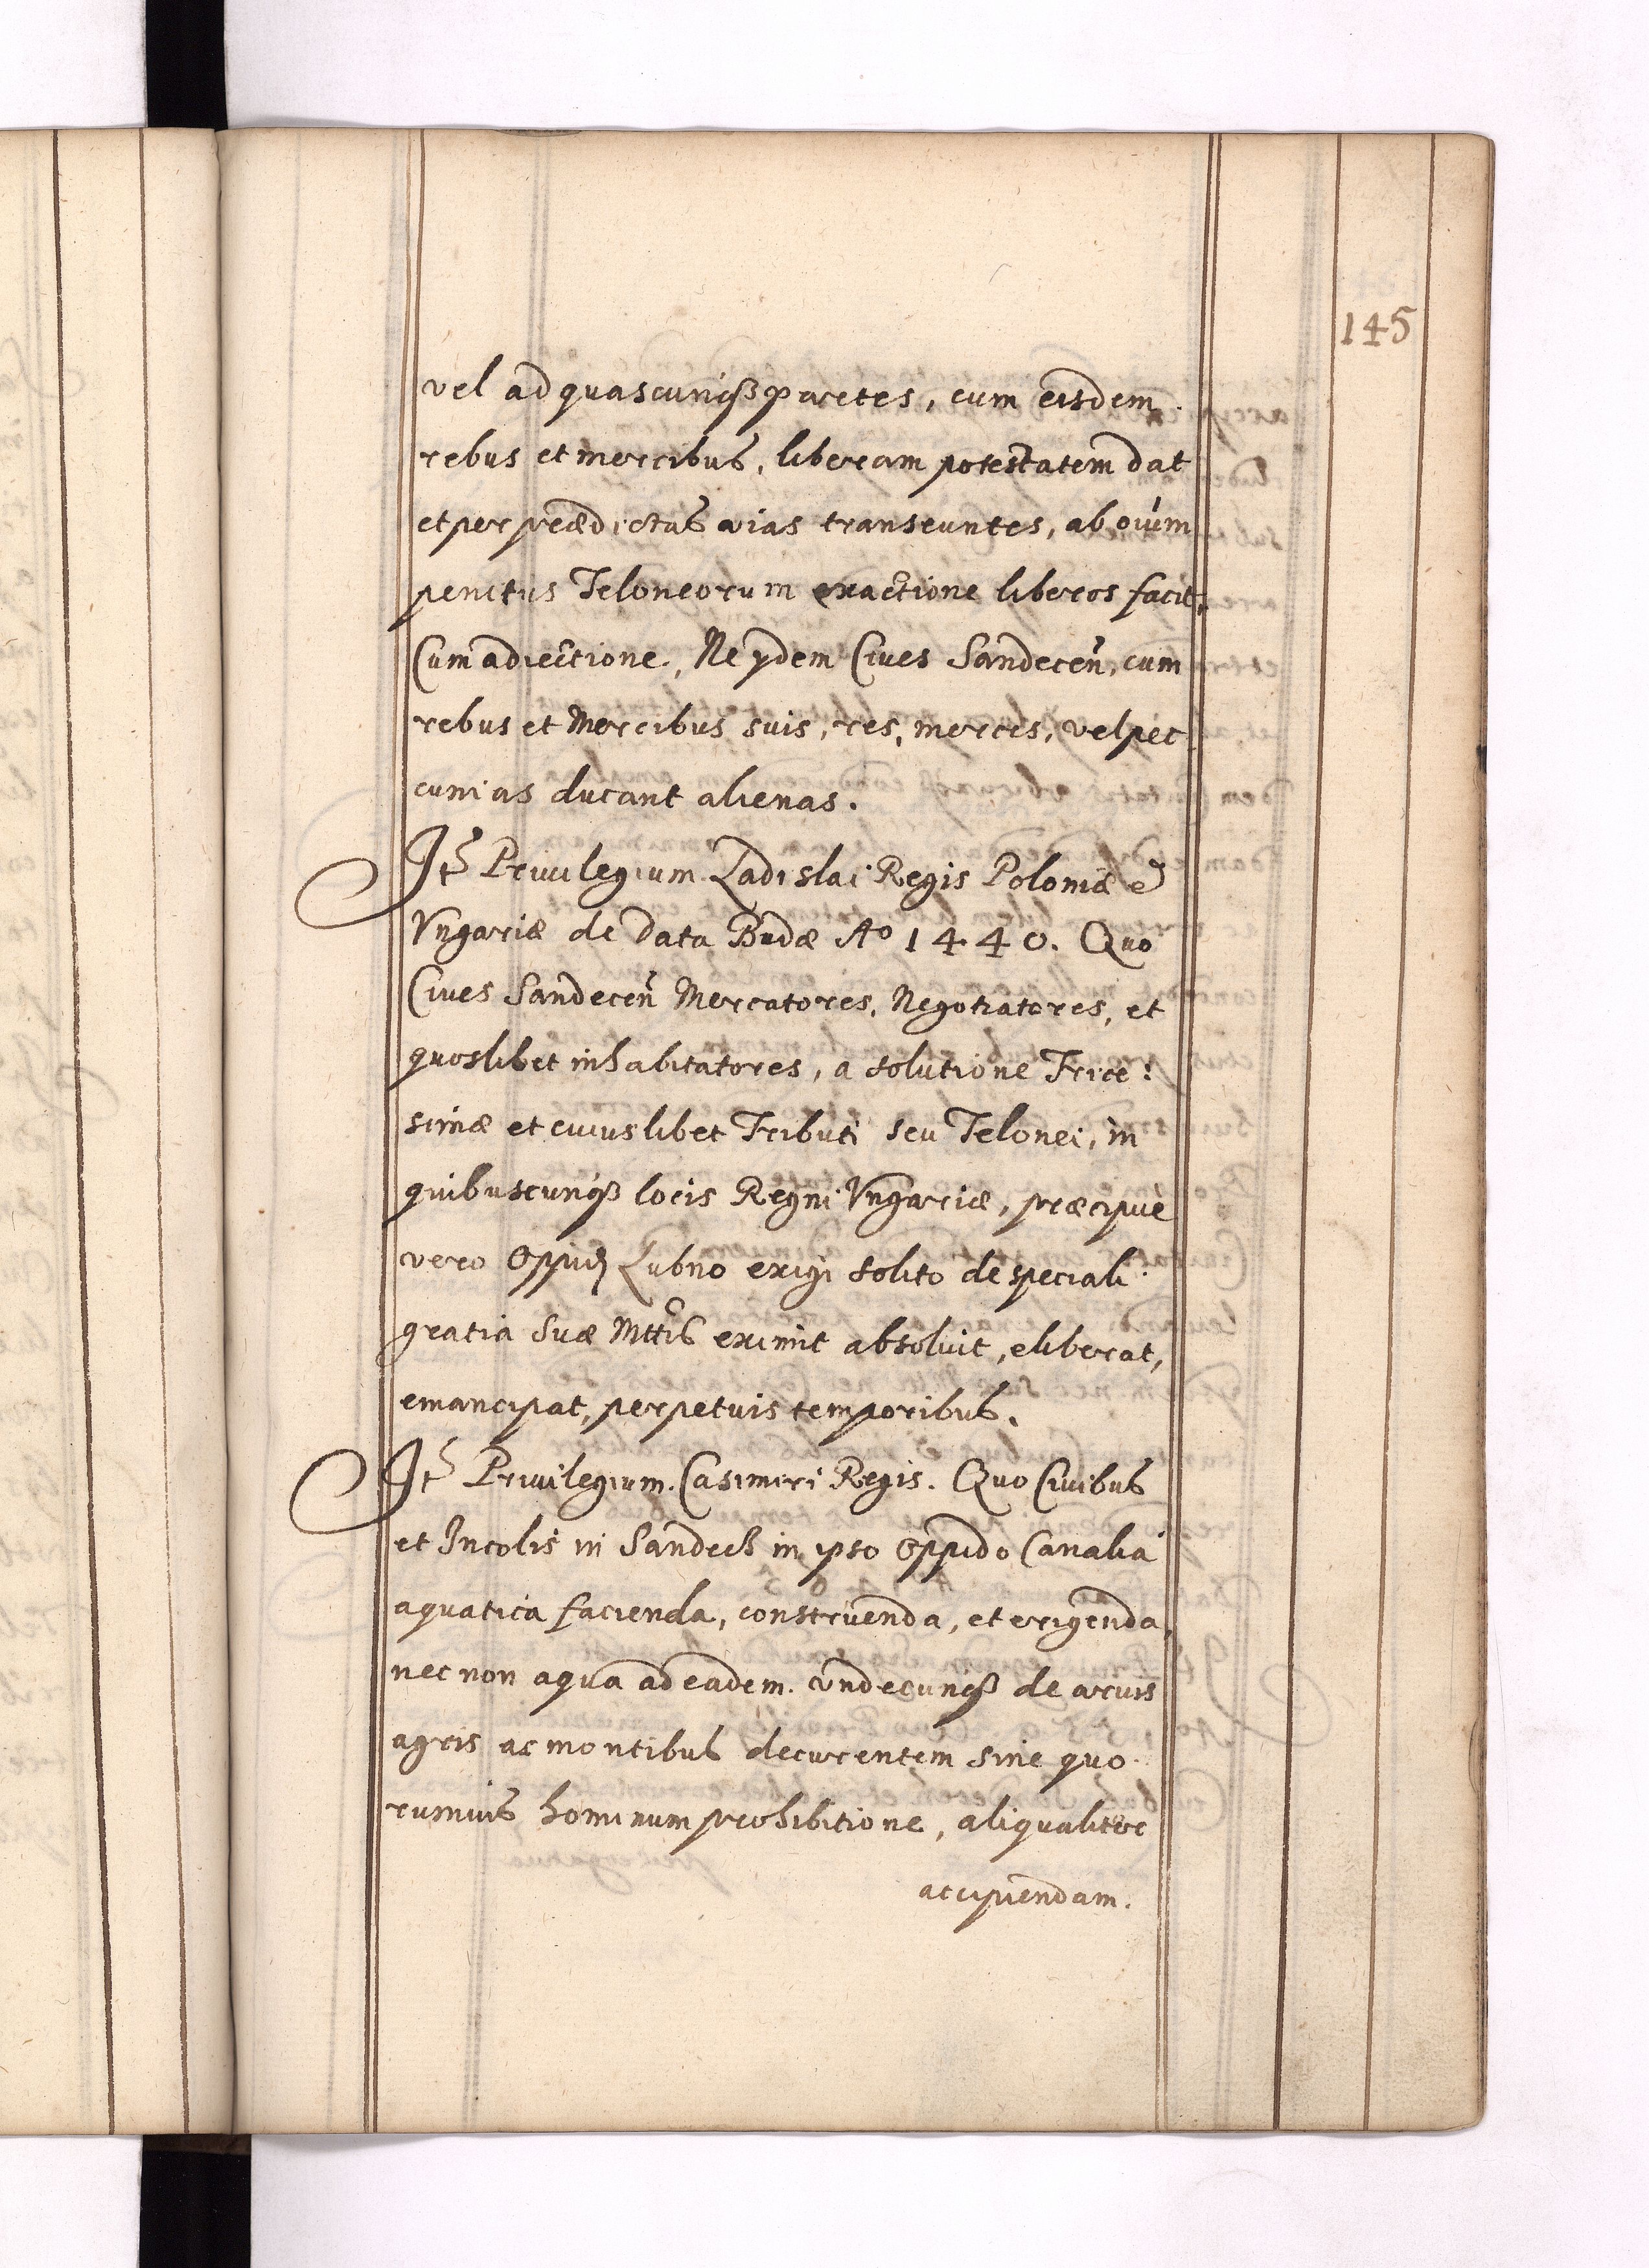 145
vel ad quascunqꝫ partes, cum eisdem
rebus et mercibus, liberam potestatem dat
et per prædictas vias transeuntes, ab oium
penitus Teloneorum exactione liberos facit,
Cum adiectione, Ne ydem Ciues Sandecen̄, cum
rebus et Mercibus suis, res, merces, vel pec
cunias ducant alienas.
It Priuilegium Ladislai Regis Poloniæ et
Vngariæ de Data Budæ Ao 1440. Quo
Ciues Sandecen̄ Mercatores, Negotiatores, et
quoslibet inhabitatores, a solutione Trice:
simæ et cuiuslibet Tributi seu Telonei, in
quibuscunqꝫ locis Regni Vngariæ, præcipuè
vero Oppid Lubno exigi solito de speciali
gratia Suæ Mttis eximit absoluit, eliberat,
emancipat, perpetuis temporibus.
It Priuilegium Casimiri Regis. Quo Ciuibus
et Incolis in Sandech in ipso Oppido Canalia
aquatica facienda, construenda, et erigenda,
nec non aqua ad eadem undecunqꝫ de aruis
agris ac montibus decurentem sine quo
rumuis hominum prohibitione, aliqualiter
accipiendam.